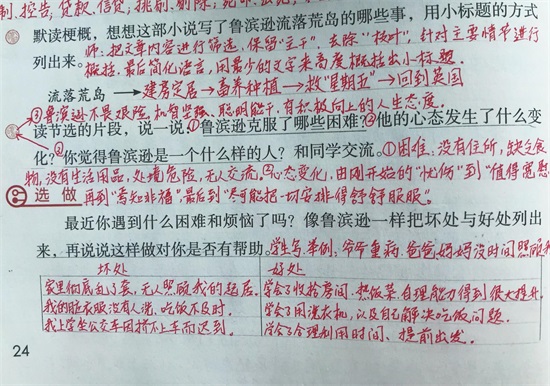 制、控告、贷款、信贷,排剔、剔除;
默读梗概,想想这部小说写了鲁滨逊流落荒岛的哪些事,用小标题的方式
师:把文章内容进行筛选,保留“主干”,去除“枝叶”,针对主要情节进行
列出来。概括。最后简化语言,用最少的文字来高度概括出小标题。
流落荒岛→建房定居→畜养种植→救“星期五”→回到英国
③鲁滨逊不畏艰险,机智坚强、聪明能干,有积极向上的人生态度。
读节选的片段,说一说①鲁滨逊克服了哪些困难?②他的心态发生了什么变
化?③你觉得鲁滨逊是一个什么样的人?和同学交流。①困难:没有住所,缺乏食
物,没有生活用品,处境危险,无人交流。②心态变化,由刚开始的“忧伤”到“值得宽慰
选做 再到“焉知非福”,最后到“尽可能把一切安排得舒舒服服”。
最近你遇到什么困难和烦恼了吗?像鲁滨逊一样把坏处与好处列出
来,再说说这样做对你是否有帮助。学生与举例:爷爷重病,爸爸妈妈没时间照顾我
坏处 好处
家里彻底乱了套,无人照顾我的起居。 学会了收拾房间、热饭菜,自理能力得到很大提升。
我的脏衣服没有人洗,吃饭不及时。 学会了用洗衣机,以及自己解决吃饭问题。
我上学坐公交车因挤不上车而迟到。 学会了合理利用时间、提前出发。
24